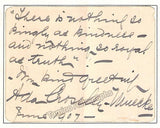 "There is nothing so
kingly as kindness –
and nothing so royal
as truth"!
Kind Greeting
June 1907 –